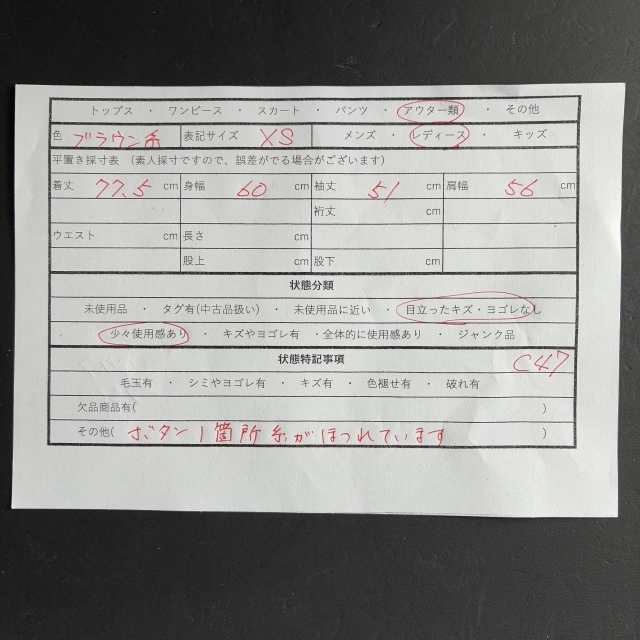 トップス ・ ワンピース ・ スカート ・ パンツ ・ アウター類 ・ その他
色 ブラウン系 表記サイズ XS メンズ ・ レディース ・ キッズ
平置き採寸表 (素人採寸ですので、誤差がでる場合がございます)
着丈 77.5 cm 身幅 60 cm 袖丈 51 cm 肩幅 56 cm
裄丈 cm
ウエスト cm 長さ cm
股上 cm 股下 cm
状態分類
未使用品 ・ タグ有(中古品扱い) ・ 未使用品に近い ・ 目立ったキズ・ヨゴレなし
少々使用感あり ・ キズやヨゴレ有 ・全体的に使用感あり ・ ジャンク品
状態特記事項 C47
毛玉有 ・ シミやヨゴレ有 ・ キズ有 ・ 色褪せ有 ・ 破れ有
欠品商品有( )
その他( ボタン1箇所糸がほつれています )